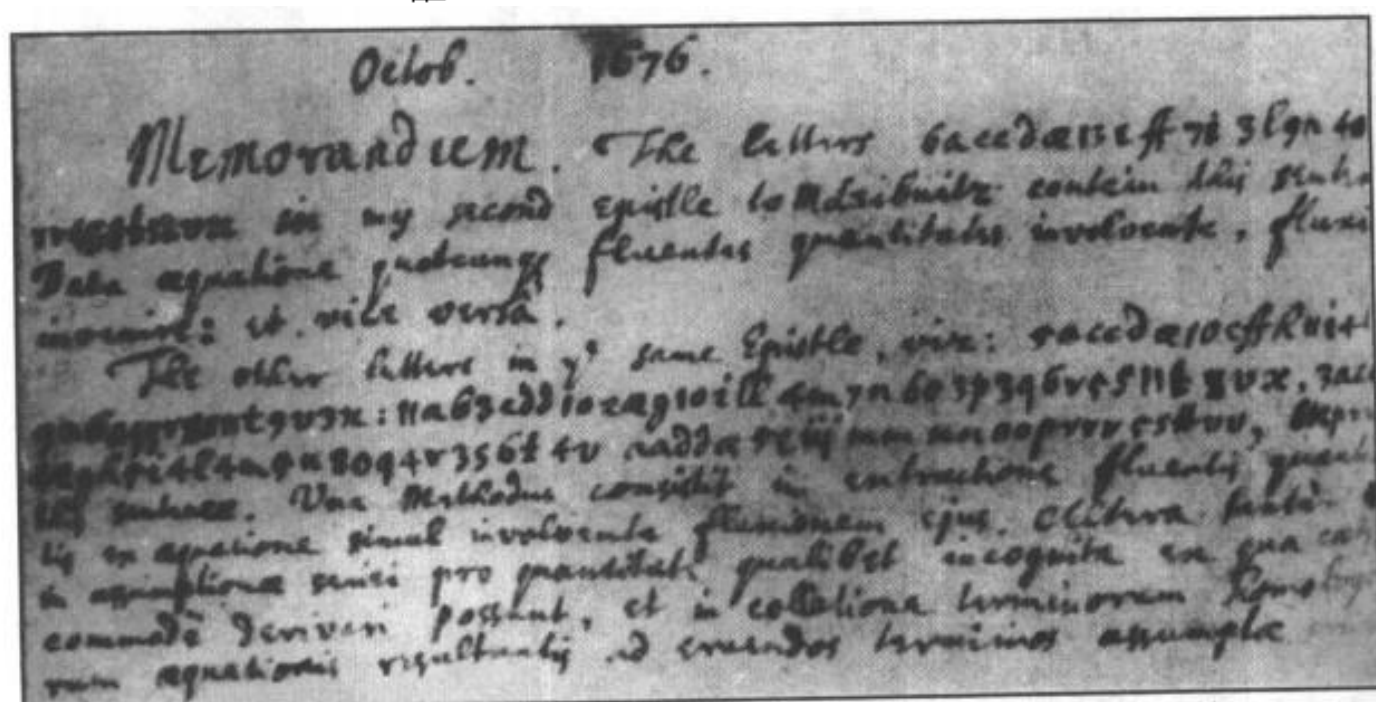 Octob. 1676.
Memorandum. The letters 6accdæ13eff7i3l9n4o
in my second Epistle to M. Leibnitz contein this sente
Data æquatione quotcunq fluentes quantitates involvente, fluxi
invenire: et vice versâ.
The other letters in yᵉ same Epistle, viz: 5accdæ10effh
: 11ab3cdd10eæg10ill4m7n6o3p3q6r5s11t8vx, 3acæ
Una Methodus consistit in extractione fluentis quanti
tis ex æquatione simul involvente fluxionem ejus. Altera tantùm
in assumptione seriei pro quantitate qualibet incognita ex qua cæt
commodè derivari possunt, et in collatione terminorum homolog
rum æquationis resultantis ad eruendos terminos assumptæ